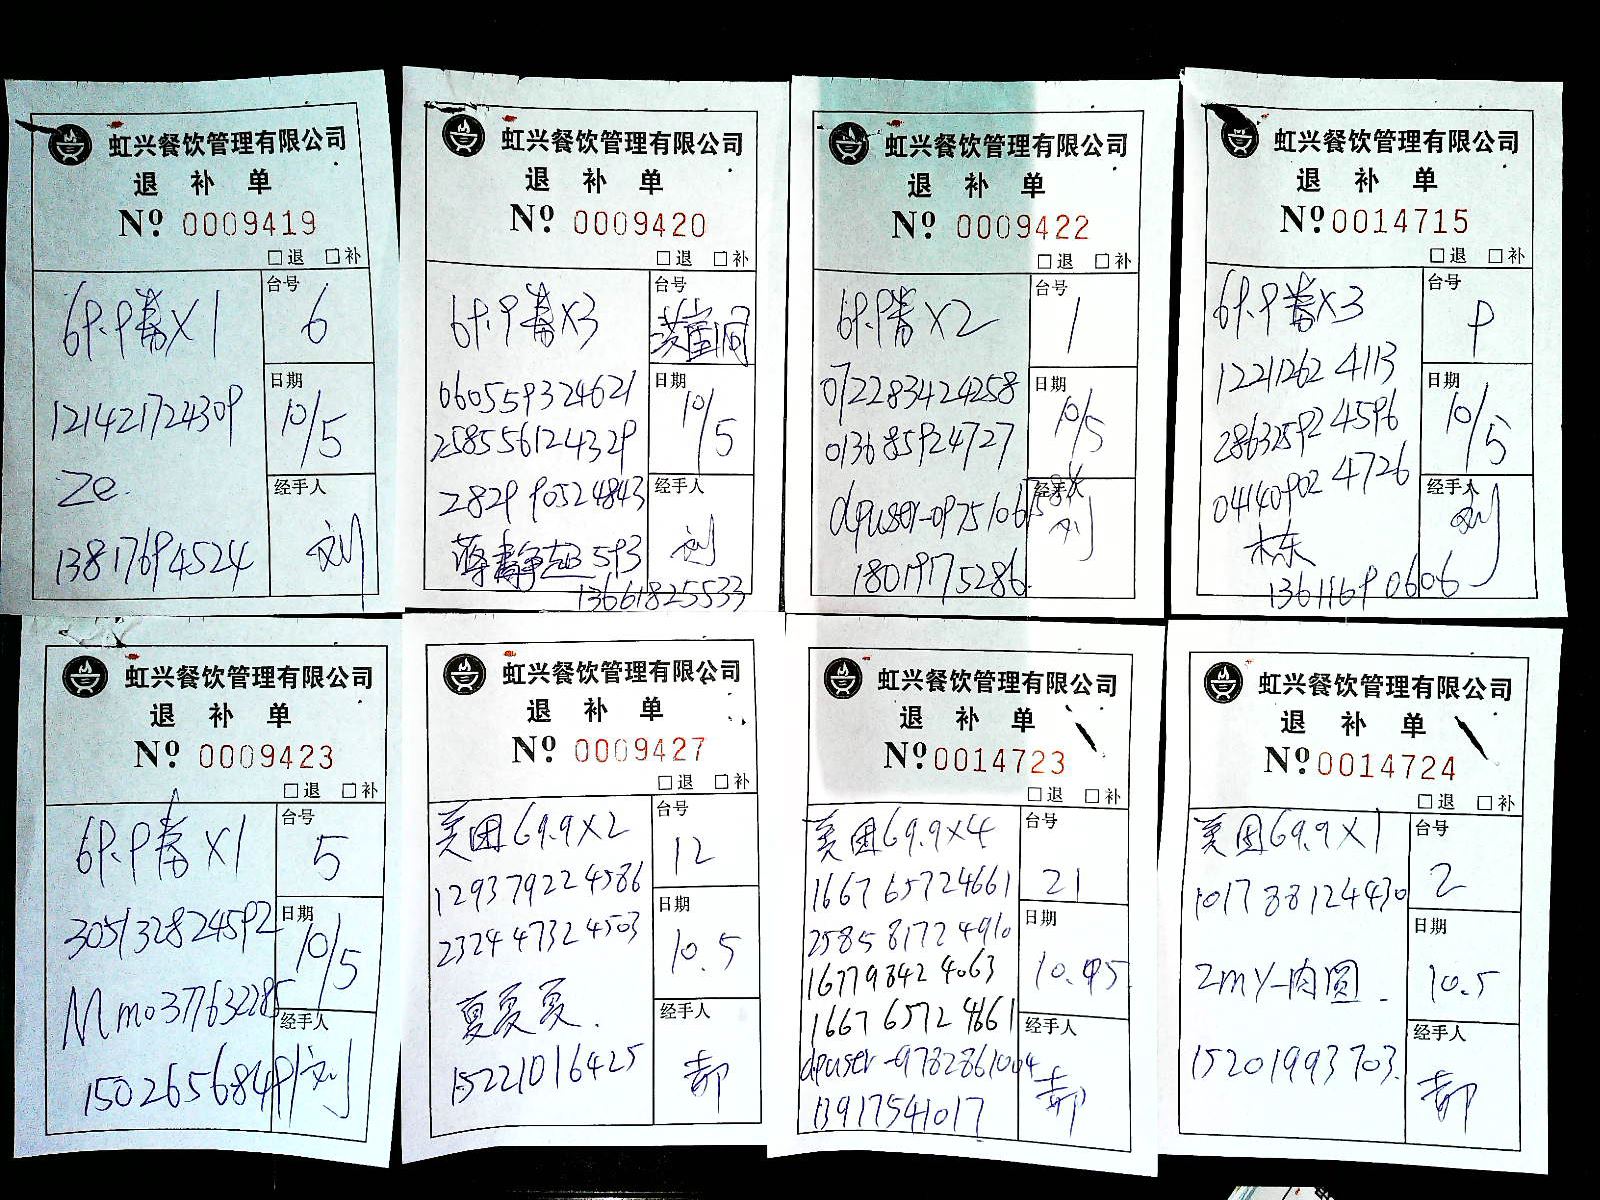 虹兴餐饮管理有限公司
退 补 单
Nº 0009419
□退 □补
69.9蕃X1
台号
6
121421724309
日期
10/5
Ze.
经手人
刘
13817694524
虹兴餐饮管理有限公司
退 补 单
Nº 0009420
□退 □补
69.9蕃X3
台号
060559324621
日期
10/5
258556124329
282990524843
经手人
刘
593
13661825533
虹兴餐饮管理有限公司
退 补 单
Nº 0009422
□退 □补
69.9蕃X2
台号
1
072283424258
日期
10/5
013685924727
经手人
刘
18019175286
虹兴餐饮管理有限公司
退 补 单
Nº 0014715
□退 □补
69.9蕃X3
台号
9
12212624113
日期
10/5
286325924596
04409024726
经手人
刘
木东
13611690606
虹兴餐饮管理有限公司
退 补 单
Nº 0009423
□退 □补
69.9蕃X1
台号
5
305132824592
日期
10/5
Mmo377632285
经手人
刘
15026568491
虹兴餐饮管理有限公司
退 补 单
Nº 0009427
□退 □补
美团69.9X2
台号
12
129379224586
日期
10.5
232447324503
夏夏夏.
经手人
郝
15221016425
虹兴餐饮管理有限公司
退 补 单
Nº 0014723
□退 □补
美团69.9X4
台号
21
166765724661
日期
258581724910
167798424063
166765724661
经手人
郝
dpuser-9782861004
13917541017
虹兴餐饮管理有限公司
退 补 单
Nº 0014724
□退 □补
美团69.9X1
台号
2
101788124430
日期
10.5
zmy-肉圆.
经手人
郝
15201993703.